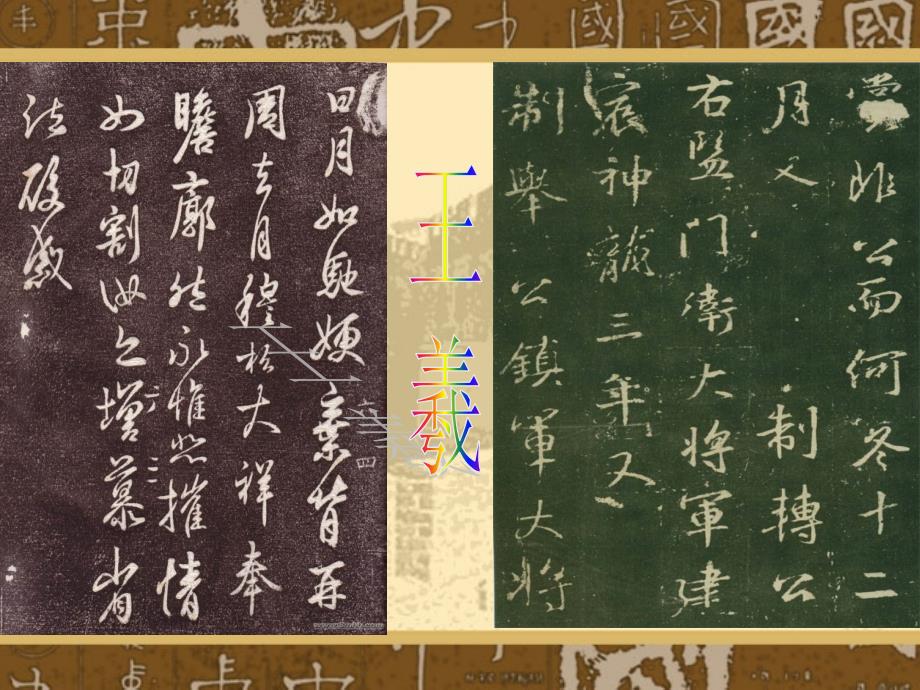 賞非公而何冬十二
月又制轉公
右監門衛大將軍建
宸神龍三年又
制舉公鎮軍大將
王羲
日月如馳嫂棄背再
周去月穆松大祥奉
瞻廓然永惟悲摧情
如切割汝亦增慕省
疏酸感